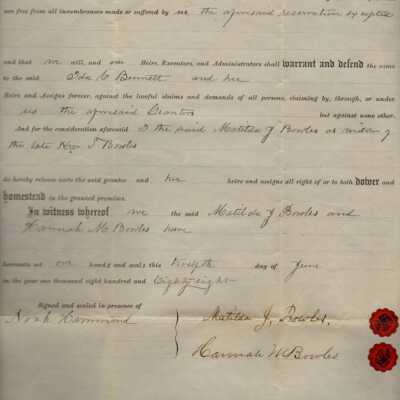 are free from all incumbrances made or suffered by us, the aforesaid reservation excepted
and that we will, and our Heirs, Executors, and Administrators shall warrant and defend the same
to the said Ida C Bennett and her
Heirs and Assigns forever, against the lawful claims and demands of all persons, claiming by, through, or under
us the aforesaid Grantors but against none other.
And for the consideration aforesaid I the said Matilda J Bowles as widow of
the late S Bowles
do hereby release unto the said grantee and her heirs and assigns all right of or to both dower and
homestead in the granted premises.
In witness whereof we the said Matilda J Bowles and
Hannah M Bowles have
hereunto set our hands and seals this twelfth day of June
in the year one thousand eight hundred and Eighty eight
Signed and sealed in presence of
Noah Hammond
Matilda J. Bowles.
Hannah M Bowles